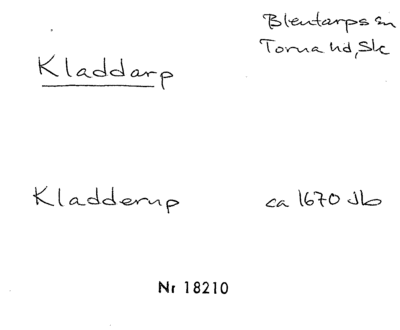 Blentarps sn
Torna hd, Sk
Kladdarp
Kladderup ca 1670 Jb
Nr 18210